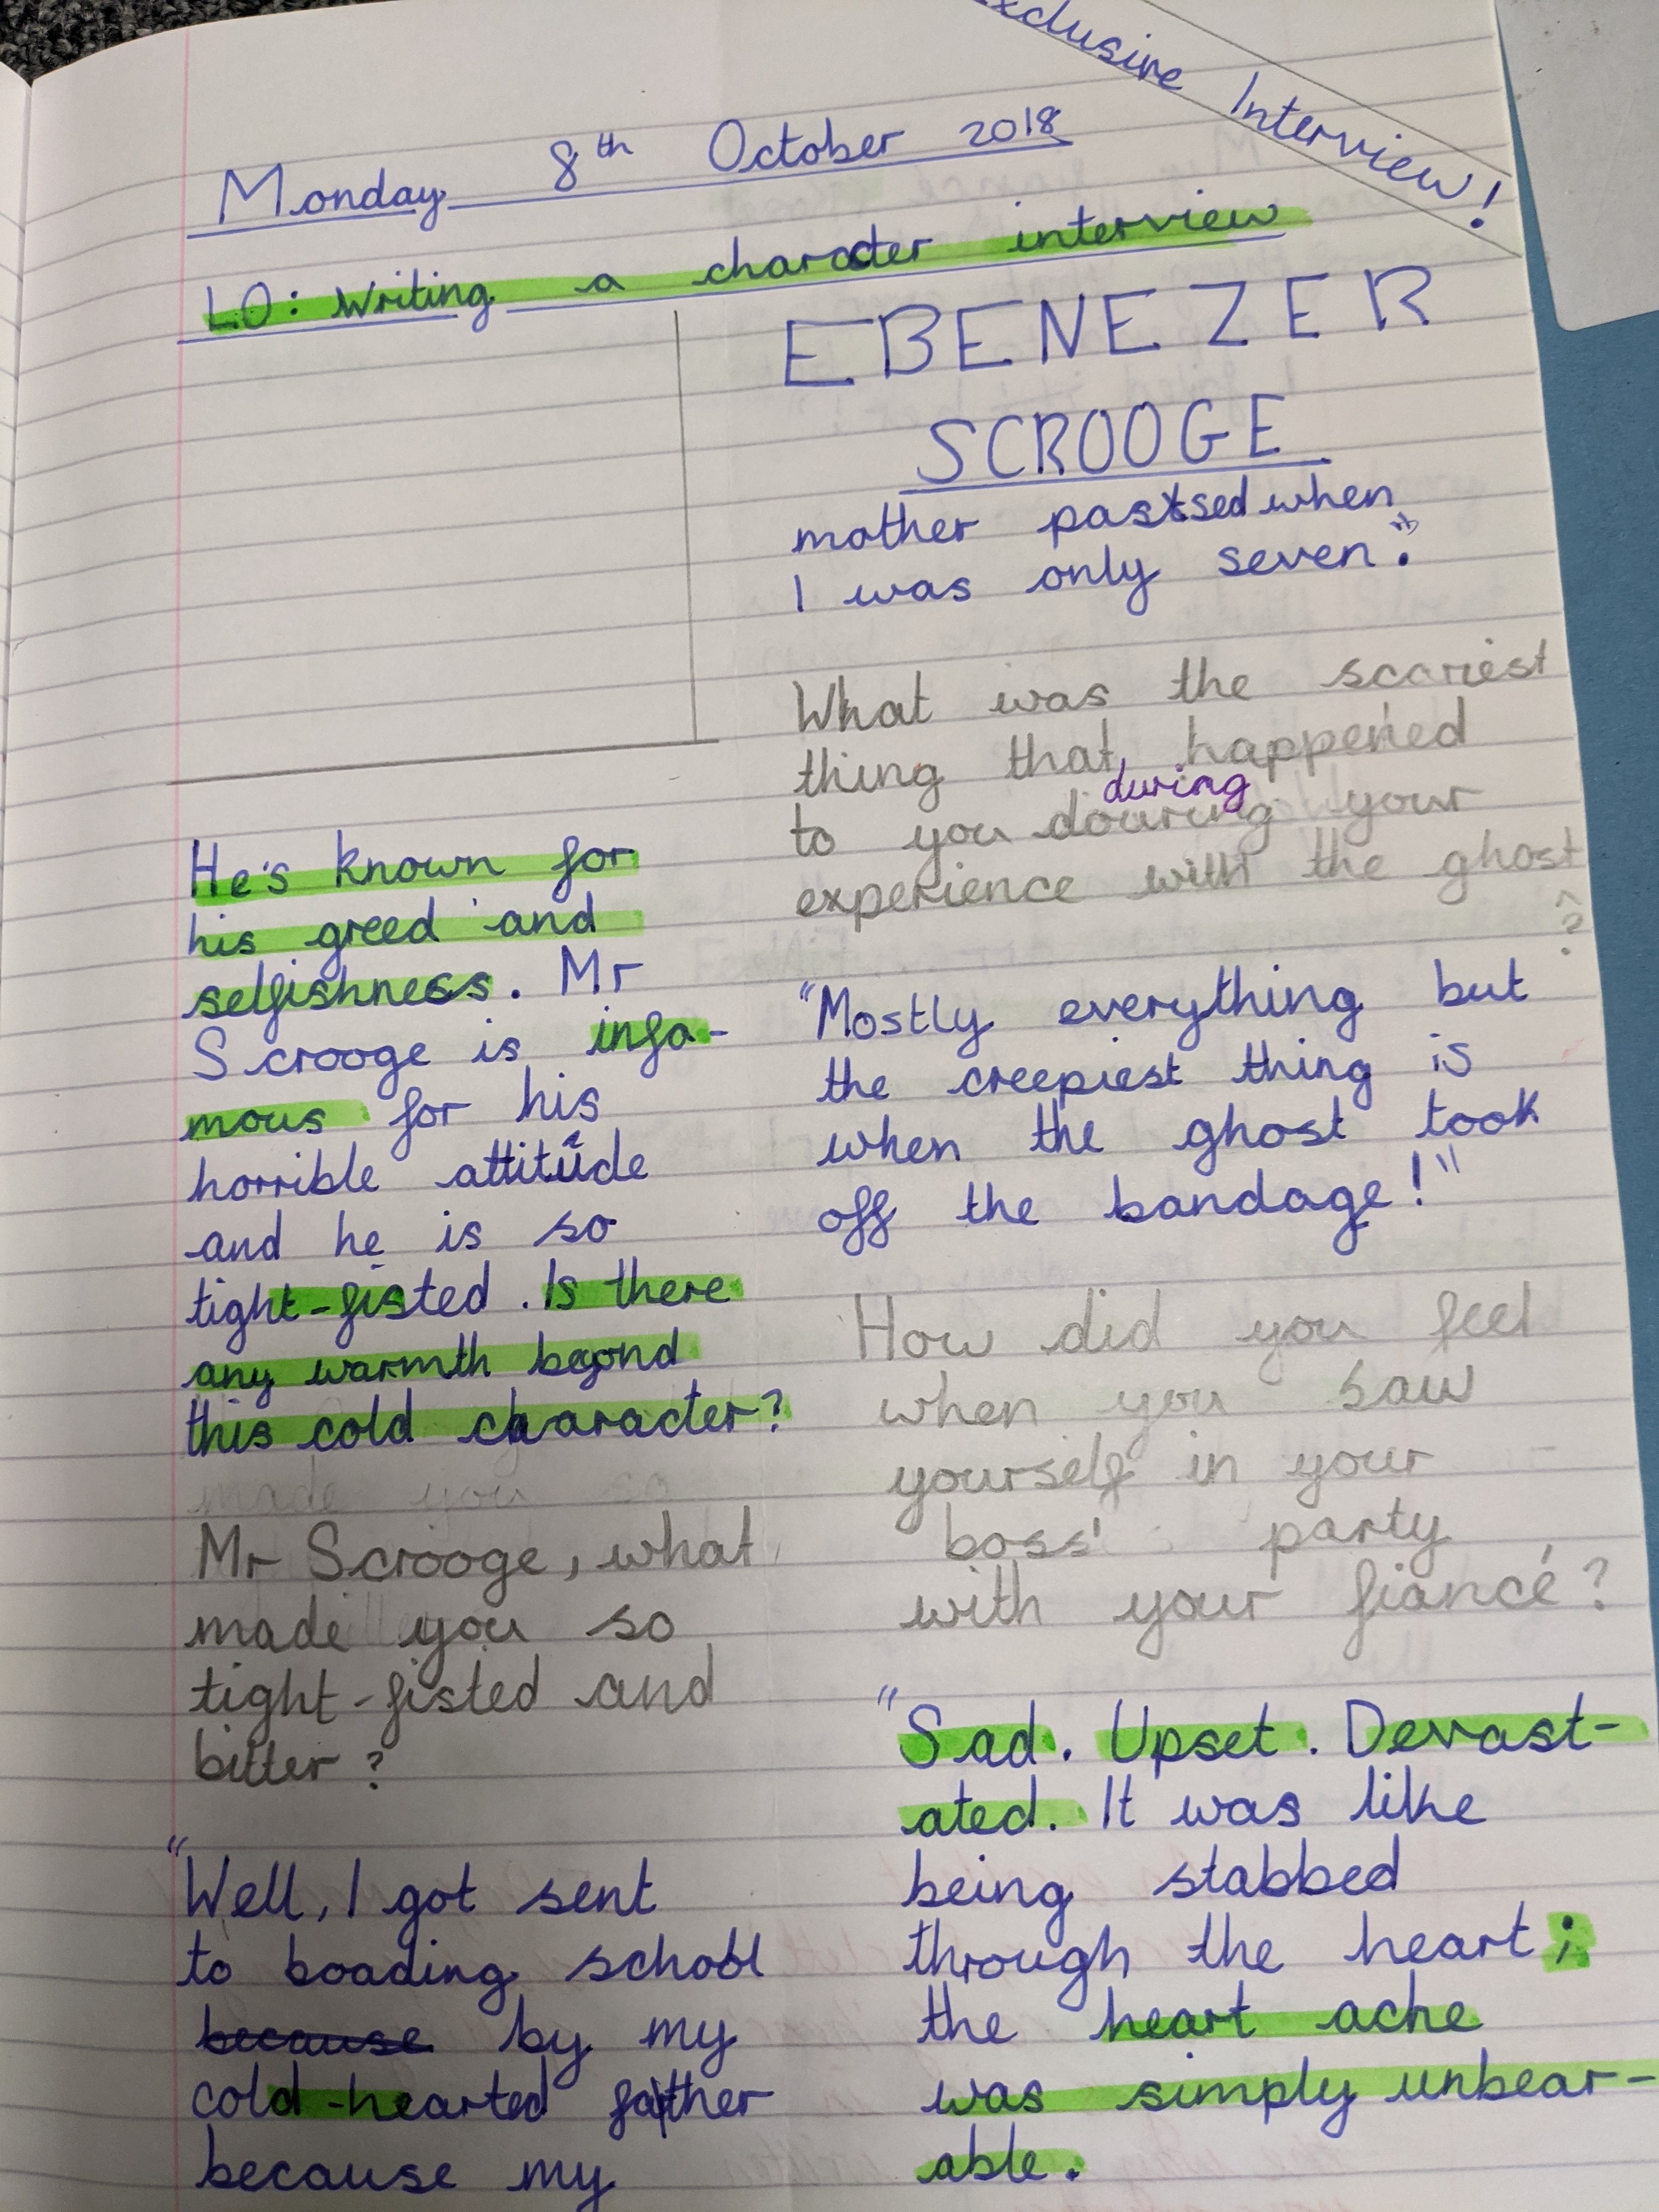 xclusive Interview!
Monday 8th October 2018
LO: Writing a character interview
EBENEZER
SCROOGE
He's known for
his greed and
selfishness. Mr
Scrooge is infa-
mous for his
horrible attitude
and he is so
tight-fisted. Is there
any warmth beyond
this cold character?
made you so
Mr Scrooge, what
made you so
tight-fisted and
bitter?
"Well, I got sent
to boading school
because by my
cold-hearted father
because my
mother passed when
I was only seven."
What was the scariest
thing that happened
during
to you douring your
experience with the ghost
?
"Mostly everything but
the creepiest thing is
when the ghost took
off the bandage!"
How did you feel
when you saw
yourself in your
boss' party
with your fiancé?
"Sad. Upset. Devast-
ated. It was like
being stabbed
through the heart;
the heart ache
was simply unbear-
able.